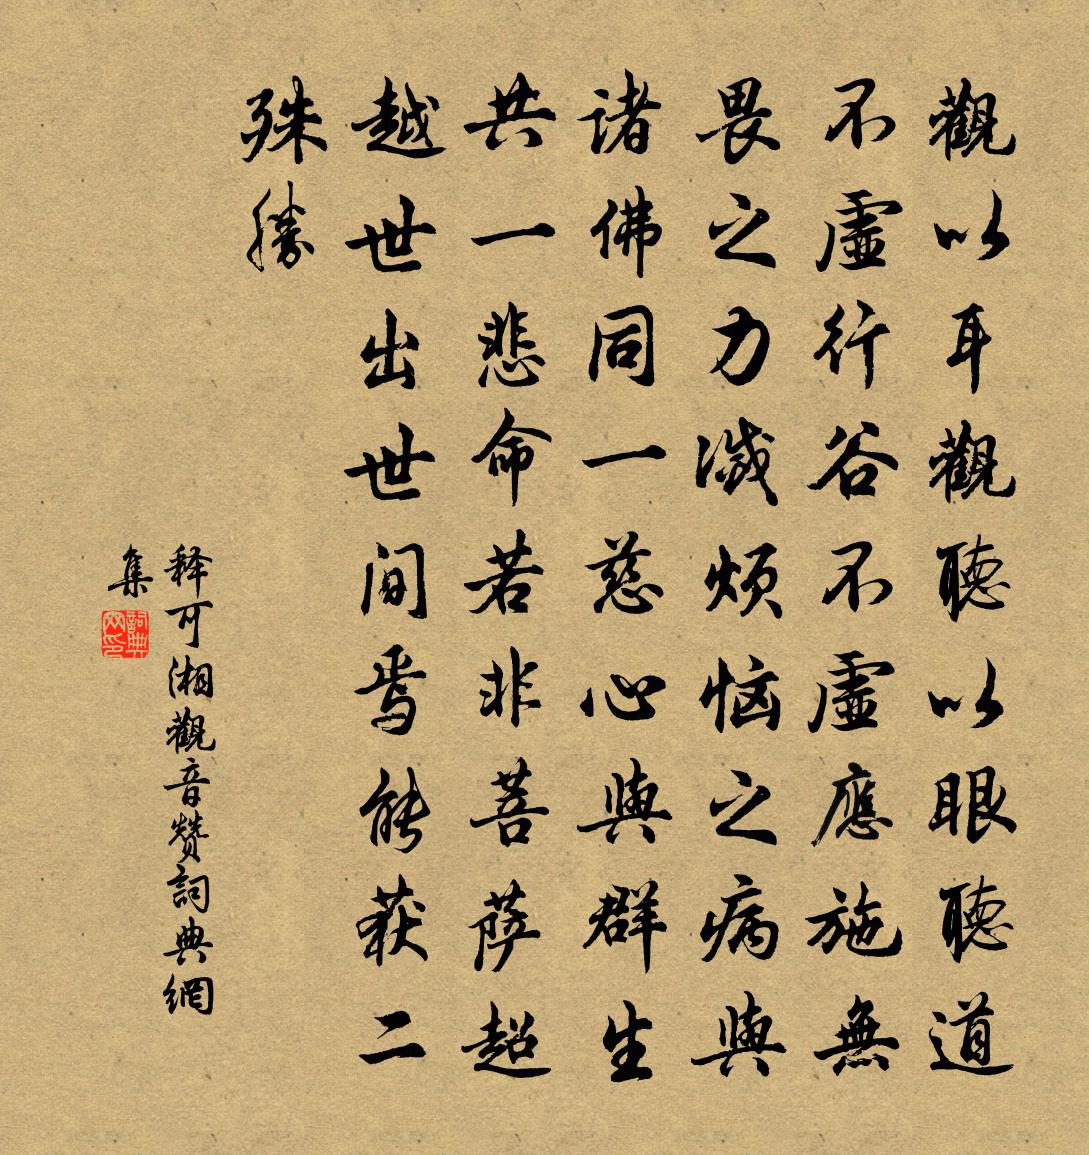 觀以耳觀聽以眼聽道
不虛行谷不虛應施無
畏之力滅烦恼之病與
诸佛同一慈心與群生
共一悲命若非菩萨超
越世出世间焉能获二
殊勝
释可湘觀音赞詞典網
集
詞典网印